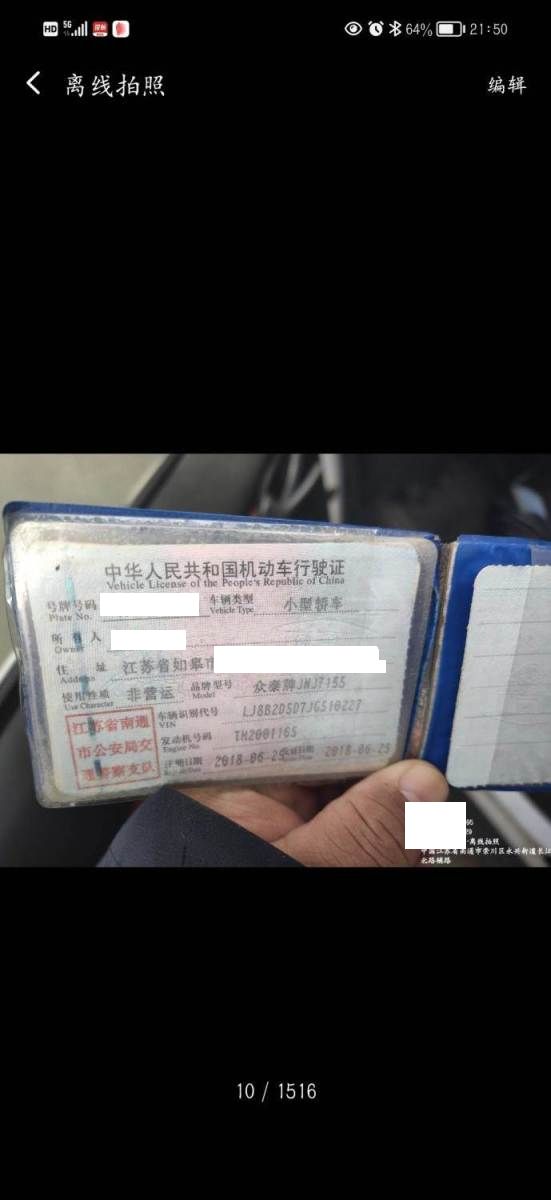 HD 5G 64% 21:50
离线拍照 编辑
中华人民共和国机动车行驶证
Vehicle License of the People's Republic of China
号牌号码 车辆类型 小型轿车
Plate No. Vehicle Type
所有人
Owner
住址 江苏省如皋市
Address
使用性质 非营运 品牌型号 众泰牌JNJ7155
Use Character Model
江苏省南通
市公安局交
通警察支队
车辆识别代号
VIN
发动机号码 TH2001165
Engine No.
注册日期 2018-06-25 发证日期 2018-06-25
离线拍照
中国江苏省南通市崇川区永兴街道长江
北路辅路
10 / 1516